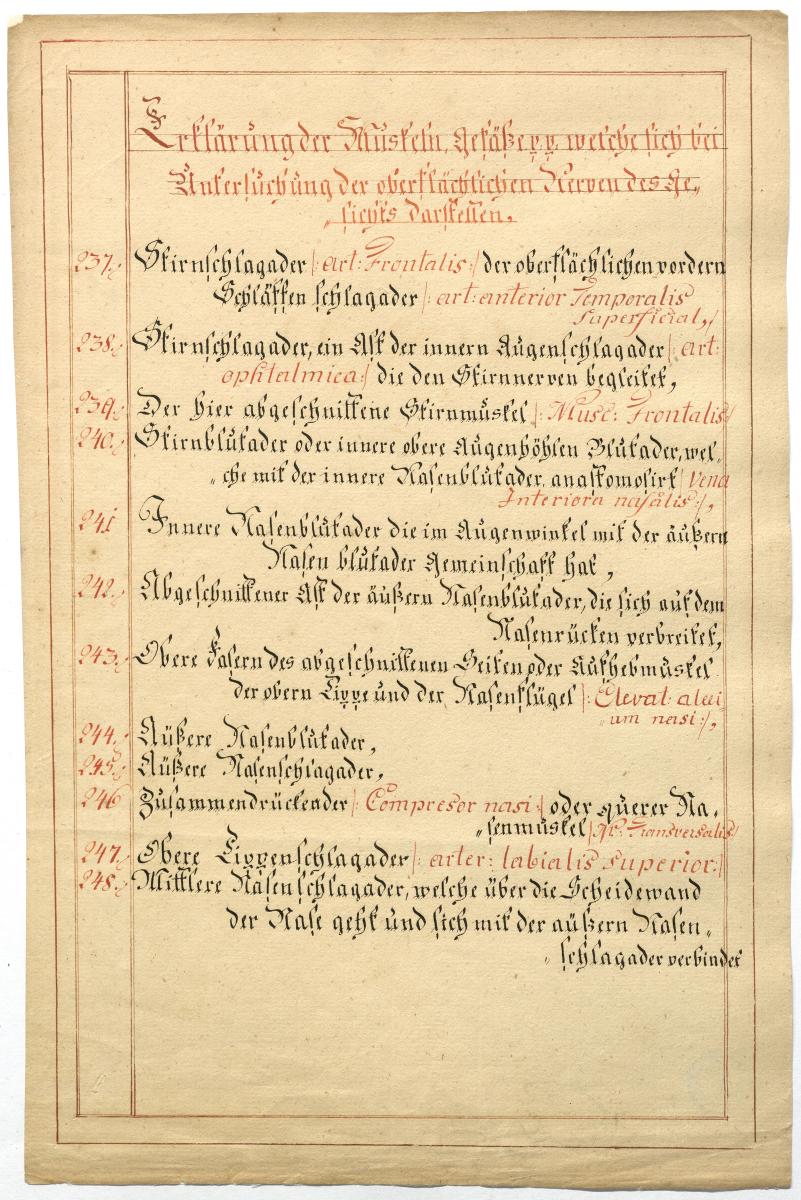 Erklärung der Muskeln, gefäße p.p. welche sich bei
Untersuchung der oberflächlichen Nerven des Ge„
„sichts darstellen.
237. Stirnschlagader /: art: Frontalis :/ der oberflächlichen vordern
Schläffen schlagader /: art: anterior Temporalis
superficial,/
238. Stirnschlagader, ein Ast der innern Augenschlagader /: art:
ophtalmica :/ die den Stirnnerven begleitet,
239. Der hier abgeschnittene Stirnmuskel /: Musc: Frontalis
240. Stirnblutader oder innere obere Augenhöhlen Blutader, wel„
„che mit der innere Nasenblutader anastomosirt /: Vena
Interiora nasalis :/,
241 Innere Nasenblutader die im Augenwinkel mit der äußern
Nasen blutader Gemeinschaft hat,
242. Abgeschnittener Ast der äußern Nasenblutader, die sich auf dem
Nasenrücken verbreitet,
243. Obere Fasern des abgeschnittenen Seiten oder Aufhebmuskel
der obern Lippe und der Nasenflügel /: Elevat: alaei
„um nasi :/,
244. Äußere Nasenblutader,
245. Äußere Nasenschlagader,
246 Zusammendrückender /: Compresor nasi :/ oder querer Na„
„senmuskel Transversalis
247. Obere Lippenschlagader /: arter: labialis superior :/
248. Mittlere Nasenschlagader, welche über die Scheidewand
der Nase geht und sich mit der äußern Nasen„
„schlagader verbindet